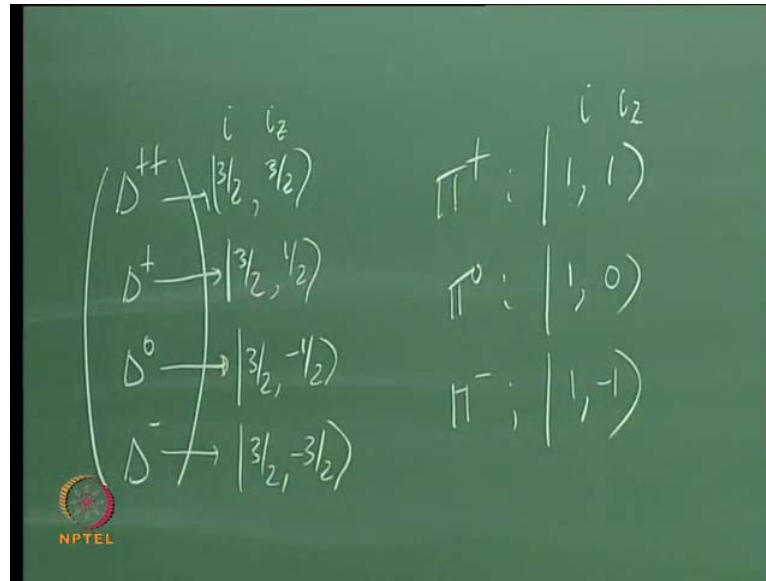 i i_z
Δ⁺⁺ → |3/2, 3/2)
Δ⁺ → |3/2, 1/2)
Δ⁰ → |3/2, -1/2)
Δ⁻ → |3/2, -3/2)
i i_z
π⁺ : |1, 1)
π⁰ : |1, 0)
π⁻ ; |1, -1)
NPTEL